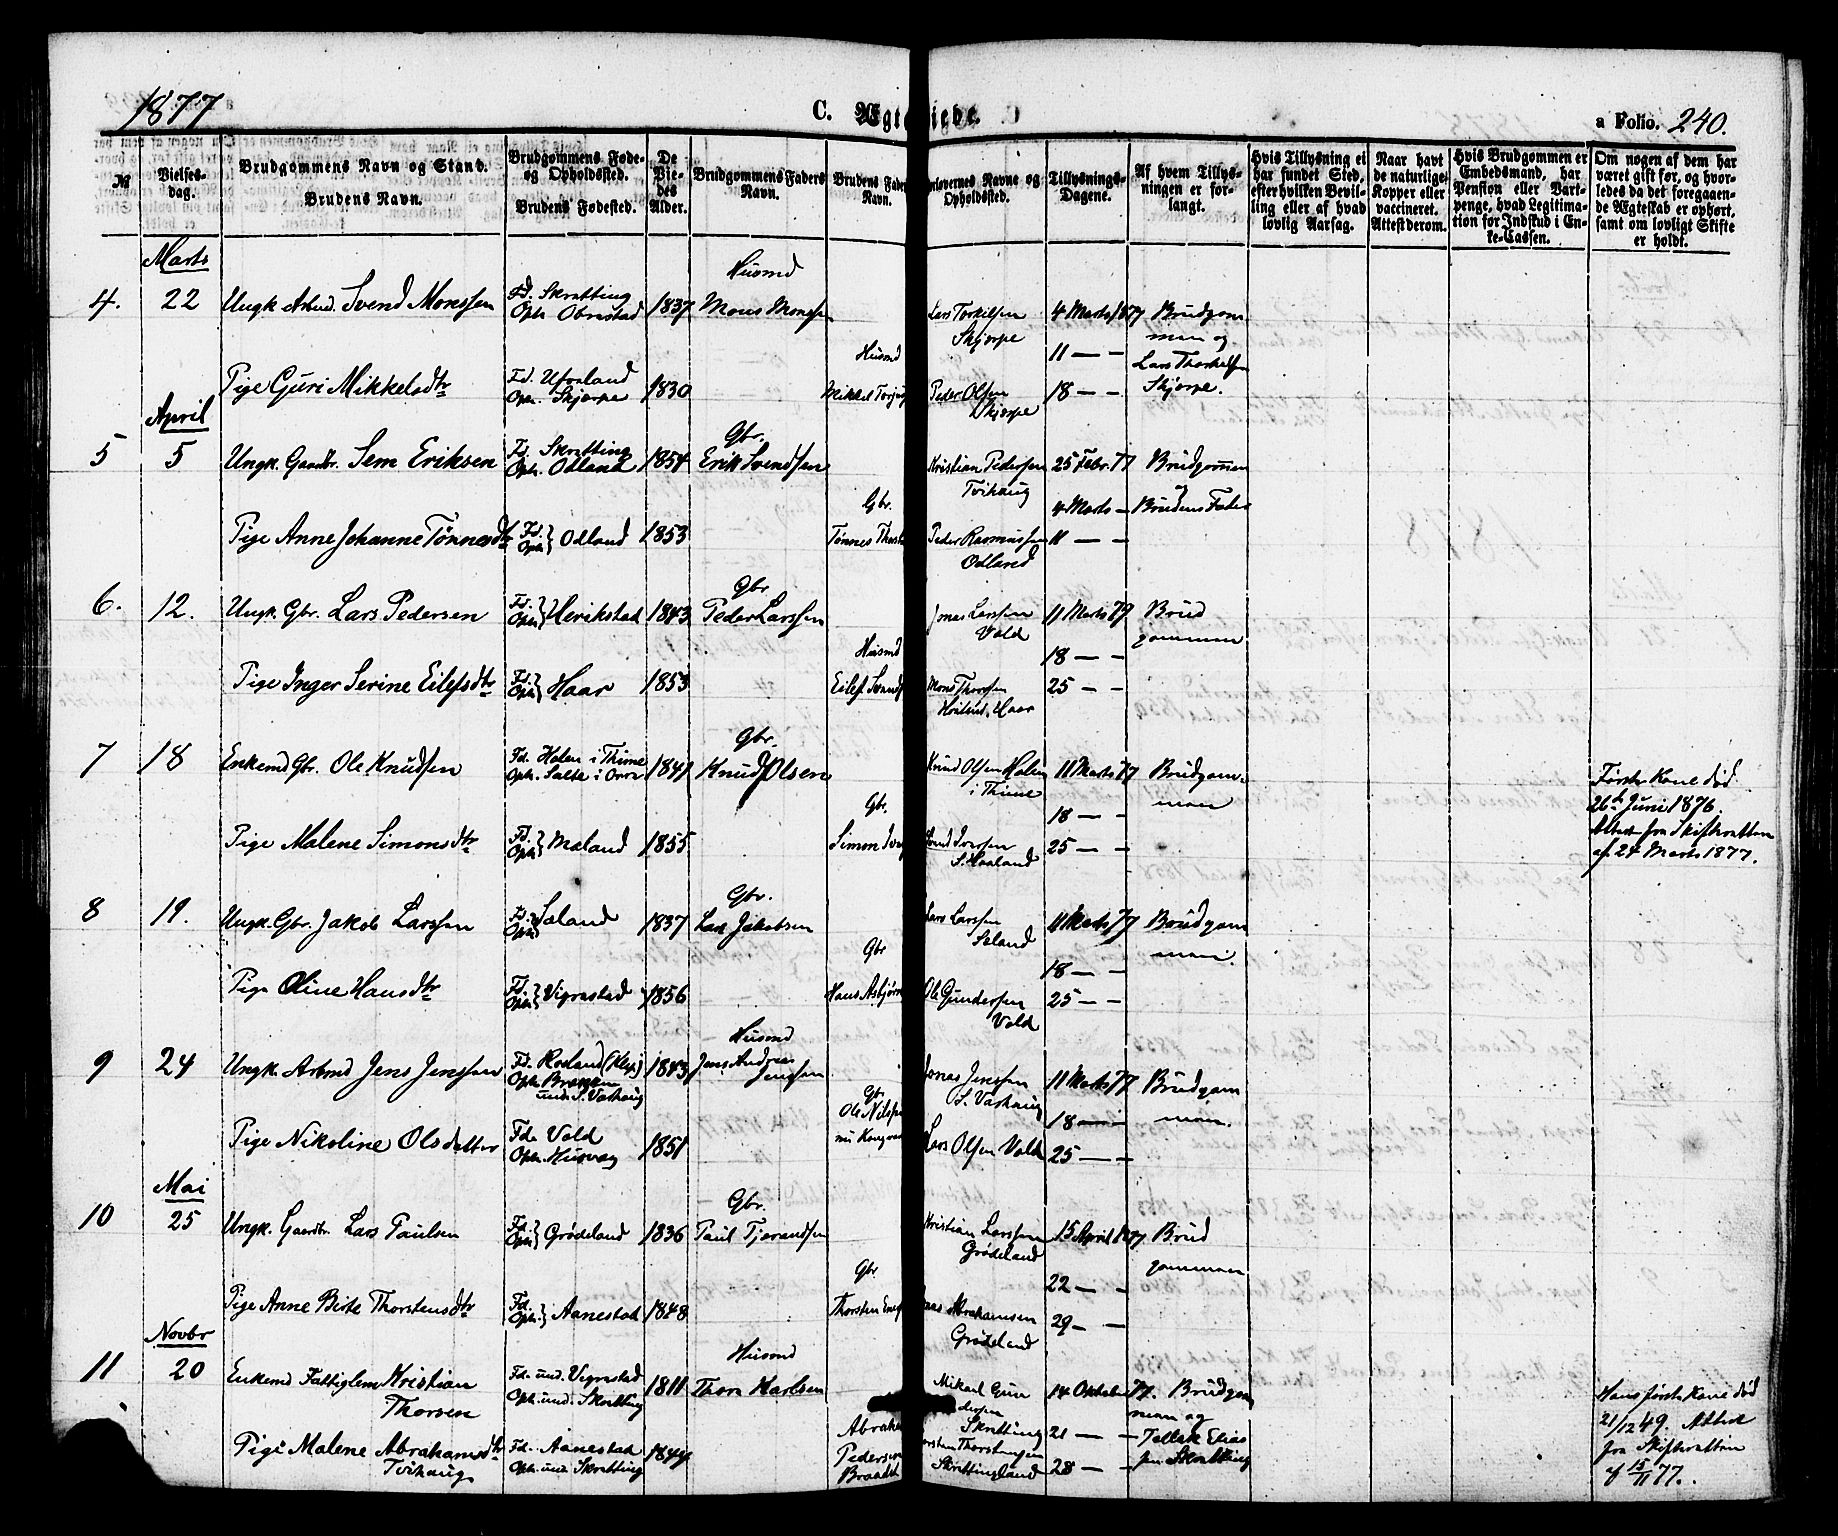 1877
C. Ægteviede.
a Folio. 240.
№
Vielses-
dag.
Brudgommens Navn og Stand.
Brudens Navn.
Brudgommens Føde-
og Opholdsted.
Brudens Fødested.
De
Vie-
des
Alder.
Brudgommens Faders
Navn.
Brudens Faders
Navn.
Forlovernes Navne og
Opholdsted.
Tillysnings-
Dagene.
Af hvem Tillys-
ningen er for-
langt.
Hvis Tillysning ei
har fundet Sted,
efter hvilken Bevil-
ling eller af hvad
lovlig Aarsag.
Naar havt
de naturlige
Kopper eller
vaccineret.
Attest derom.
Hvis Brudgommen er
Embedsmand, har
Pension eller Vart-
penge, hvad Legitima-
tion for Indskud i En-
ke-Cassen.
Om nogen af dem har
været gift før, og hvor-
ledes da det foregaaen-
de Ægteskab er ophørt,
samt om lovligt Skifte
er holdt.
Marts
4. 22 Ungk. Arbmd. Svend Monssen
Fd. Skratting
Oph. Obrestad
1837
Husmd
Mons Monssen
Lars Torkilsen
Skjorpe
4 Marts 1877
11 — —
18 — —
Brudgom-
men og
Lars Thorkelsen
Skjorpe.
Pige Guri Mikkelsdtr
Fd. Ufsaland
Oph. Skjorpe
1830
Husmd
Mikkel
Peder Olsen
Skjorpe
April
5 5 Ungk. Gaardbr. Sem Eriksen
Fd. Skratting
Oph. Odland
1854
Gbr.
Erik Svendsen
Kristian Pedersen
Tvihaug
25 Febr. 77
4 Marts —
11 — —
Brudgommen
og
Brudens Fader
Pige Anne Johanne Tønnesdtr
Fd.
Oph. } Odland
1853
Gbr.
Tønnes
Peder Rasmussen
Odland
6. 12. Ungk. Gbr. Lars Pedersen
Fd.
Oph. } Herikstad
1843
Gbr
Peder Larssen
Jonas Larssen
Vold
11 Marts 77
18 — —
25 — —
Brud
gommen
Pige Inger Serine Eilefsdtr
Fd.
Oph. } Haar
1853
Husmd
Eilef
Mons Thorsen
Haar
7 18 Enkemd Gbr. Ole Knudsen
Fd. Holen i Thime
Oph. Salte i Orre
1841
Gbr.
Knud Olsen
Knud Olsen Holen
i Thime
11 Marts 77
18 — —
25 — —
Brudgom-
men
Første Kone død
26de Juni 1876.
Attest fra Skifteretten
af 24 Marts 1877.
Pige Malene Simonsdtr
Fd.
Oph. } Mæland
1855
Gbr.
Simon
S. Haaland
8 19. Ungk. Gbr. Jakob Larssen
Fd.
Oph. } Søland
1837
Gbr.
Lars Jakobsen
Lars Larssen
Søland
11 Marts 77
18 — —
25 — —
Brudgom
men.
Pige Oline Hansdtr
Fd.
Oph. } Vigrestad
1856
Gbr
Hans Asbjørn
Ole Gundersen
Vold
9 24 Ungk. Arbmd Jens Jenssen
Fd. Roeland (Klep)
Oph.
und. S. Varhaug
1843
Husmd
Jens Andreas
Jenssen
Jonas Jenssen
S. Varhaug
11 Marts 77
18 — —
25 — —
Brudgom
men.
Pige Nikoline Olsdatter
Fd. Vold
Oph.
1851
Gbr.
Ole Nilsen
Lars Olsen Vold
Mai
10 25 Ungk. Gaardbr. Lars Paulsen
Fd.
Oph. } Grødeland
1836
Gbr.
Paul Tjerandsen
Kristian Larssen
Grødeland
15 April 1877
22 — —
29 — —
Brud
gommen
Pige Anne Birte Thorstensdtr
Fd.
Oph. } Aanestad
1848
Gbr
Thorsten
Jonas Abrahamsen
Grødeland
Novbr
11 20 Enkemd Fattiglem Kristian
Thorsen
Fd. und. Vigrestad
Oph. und. Skratting
1811
Husmd
Thore Karlsen
Mikael Gun
dersen
Skratting
14 Oktober 77.
21 — —
28 — —
Brudgom
men og
Tollak Elias
sen Skratting
Hans første Kone død
21/12 49. Attest
fra Skifteretten
af 15/11 77.
Pige Malene Abrahamsdtr
Tvihaug
Fd. Aanestad
Oph. und. Skratting
1844
Abraham
Pedersen
Thorsten Thorstensen
Skrettingland